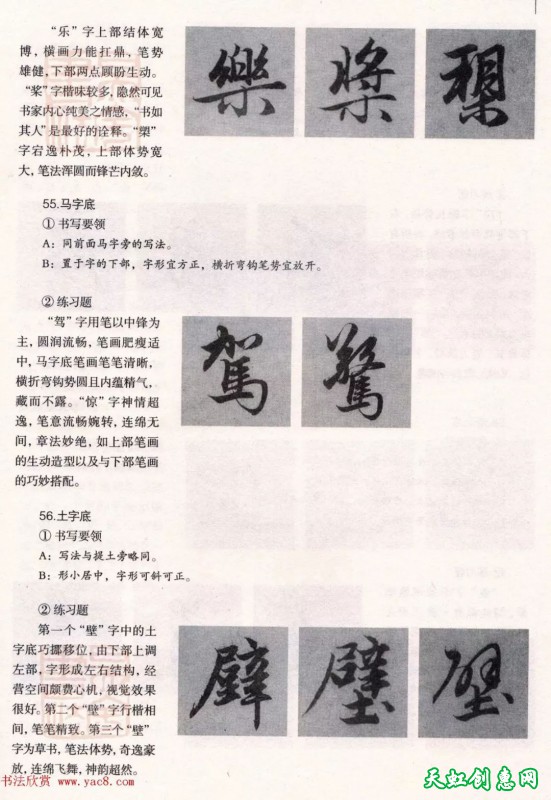 “乐”字上部结体宽
博，横画力能扛鼎、笔势
雄健，下部两点顾盼生动。
“桨”字楷味较多，隐然可见
书家内心纯美之情感，“书如
其人”是最好的诠释。“槼”
字宕逸朴茂，上部体势宽
大，笔法浑圆而锋芒内敛。
樂 槳 槼
55.马字底
①书写要领
A：同前面马字旁的写法。
B：置于字的下部，字形宜方正，横折弯钩笔势宜放开。
②练习题
“驾”字用笔以中锋为
主，圆润流畅，笔画肥瘦适
中，马字底笔画笔笔清晰，
横折弯钩势圆且内蕴精气，
藏而不露。“惊”字神情超
逸，笔意流畅婉转，连绵无
间，章法妙绝，如上部笔画
的生动造型以及与下部笔画
的巧妙搭配。
駕 驚
56.土字底
①书写要领
A：写法与提土旁略同。
B：形小居中，字形可斜可正。
②练习题
第一个“壁”字中的土
字底巧挪移位，由下部上调
左部，字形成左右结构，经
营空间颇费心机，视觉效果
很好。第二个“壁”字行楷相
间，笔笔精致。第三个“壁”
字为草书，笔法体势，奇逸豪
放，连绵飞舞，神韵超然。
壁 壁 壁
书法欣赏 www.yac8.com
天虹创意网